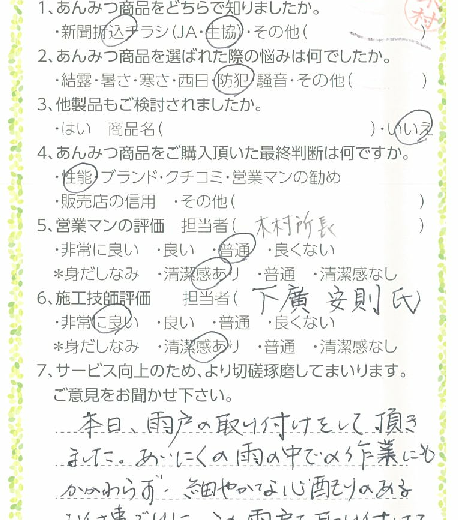 1、あんみつ商品をどちらで知りましたか。
・新聞折込チラシ(JA・生協)・その他( )
2、あんみつ商品を選ばれた際の悩みは何でしたか。
・結露・暑さ・寒さ・西日・防犯・騒音・その他( )
3、他製品もご検討されましたか。
・はい 商品名( )・いいえ
4、あんみつ商品をご購入頂いた最終判断は何ですか。
・性能・ブランド・クチコミ・営業マンの勧め
・販売店の信用 ・その他( )
5、営業マンの評価 担当者( 木村所長 )
・非常に良い ・良い ・普通 ・良くない
*身だしなみ ・清潔感あり ・普通 ・清潔感なし
6、施工技師評価 担当者( 下廣 安則 氏
・非常に良い ・良い ・普通 ・良くない
*身だしなみ ・清潔感あり ・普通 ・清潔感なし
7、サービス向上のため、より切磋琢磨してまいります。
ご意見をお聞かせ下さい。
本日、雨戸の取り付けをして頂き
ました。あいにくの雨の中での作業にも
かかわらず、細やかな心配りのある